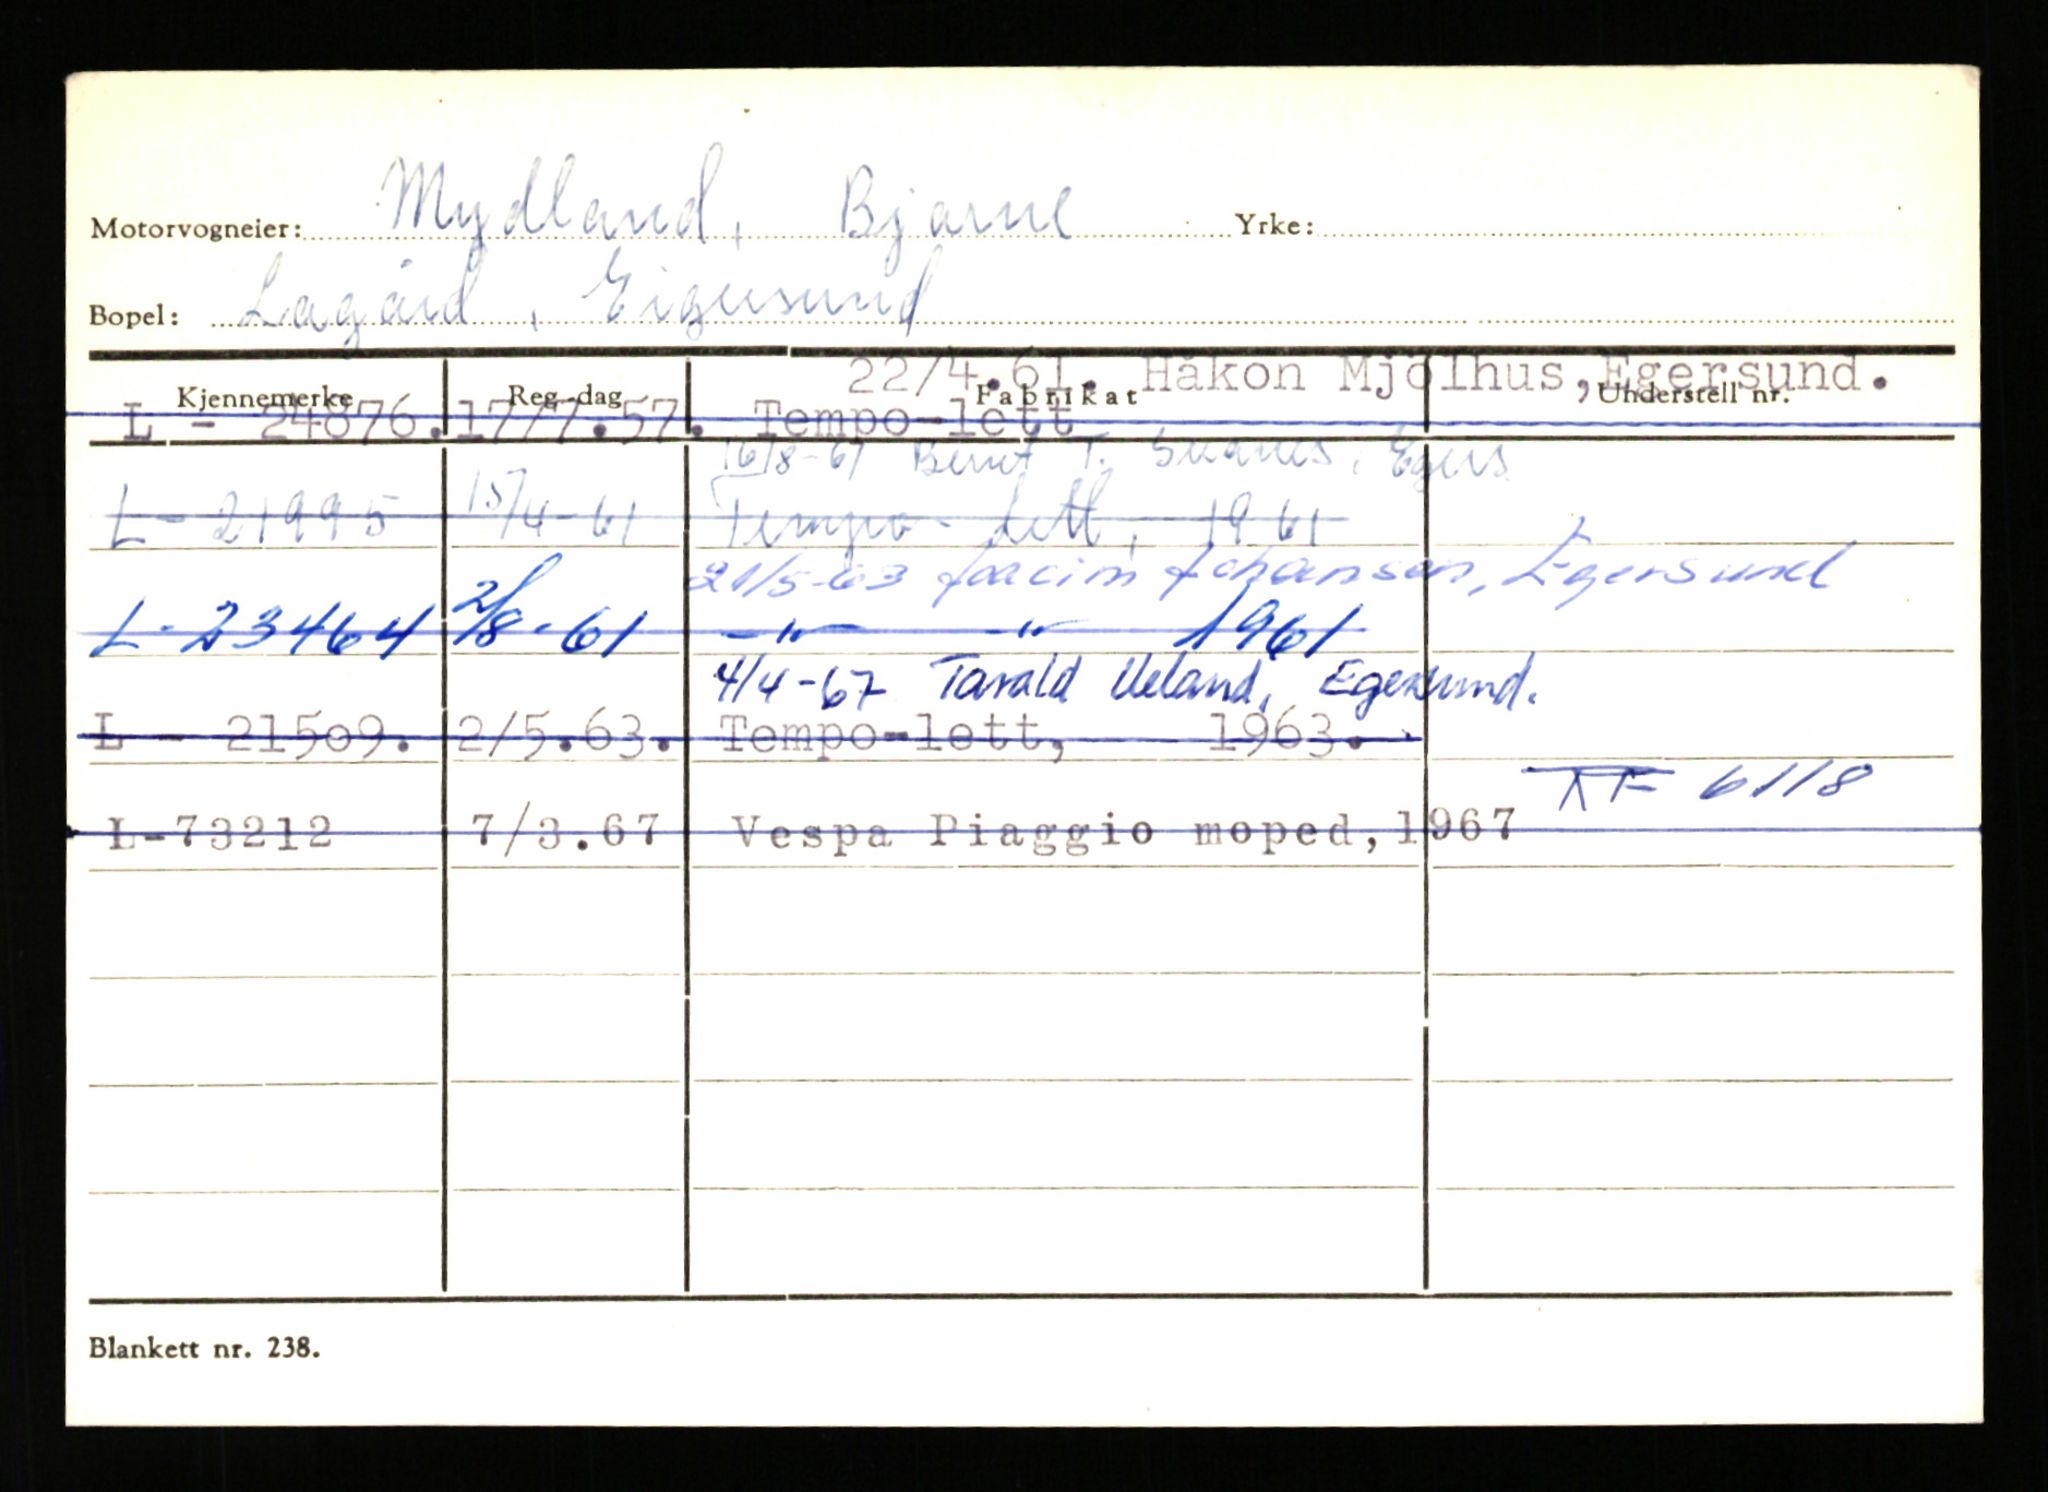 Motorvogneier: Mydland, Bjarne Yrke:
Bopel: Lagård, Eigersund
22/4.61. Håkon Mjølhus, Egersund.
Kjennemerke Reg.-dag Fabrikat Understell nr.
L - 24876. 17/7.57. Tempo-lett
16/8-61 Bernt T. Egers
L - 21995 15/4-61 Tempo lett, 1961
21/5-63 Joacim Johansen, Egersund
L - 23464 2/8-61 -"- -"- 1961
4/4-67 Tarald Ueland, Egersund.
L - 21509. 2/5.63. Tempo-lett, 1963.
KF 6118
L-73212 7/3.67 Vespa Piaggio moped, 1967
Blankett nr. 238.